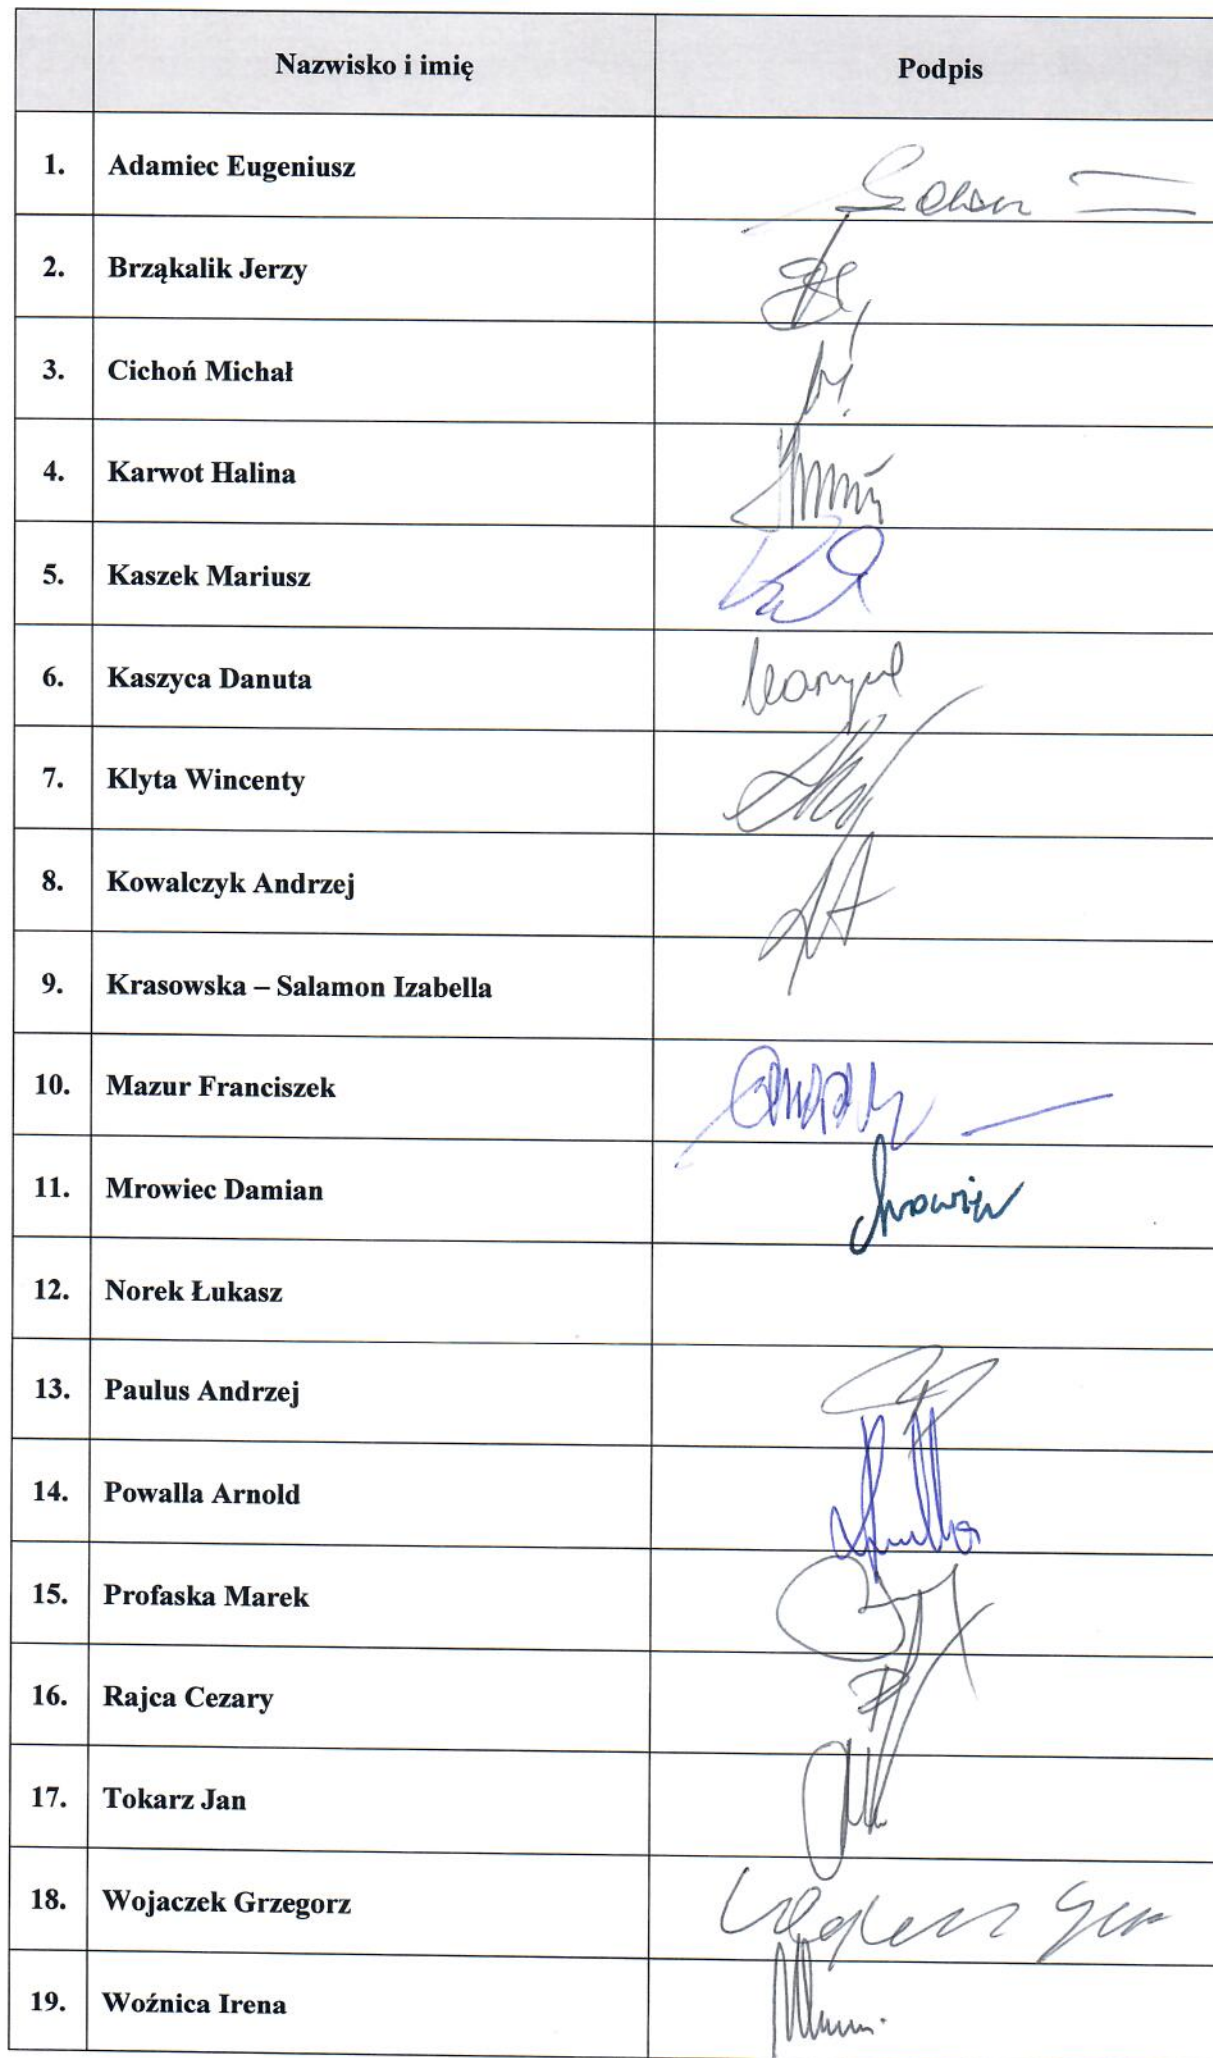 Nazwisko i imię Podpis
1. Adamiec Eugeniusz
2. Brząkalik Jerzy
3. Cichoń Michał
4. Karwot Halina
5. Kaszek Mariusz
6. Kaszyca Danuta
7. Klyta Wincenty
8. Kowalczyk Andrzej
9. Krasowska – Salamon Izabella
10. Mazur Franciszek
11. Mrowiec Damian
12. Norek Łukasz
13. Paulus Andrzej
14. Powalla Arnold
15. Profaska Marek
16. Rajca Cezary
17. Tokarz Jan
18. Wojaczek Grzegorz
19. Woźnica Irena